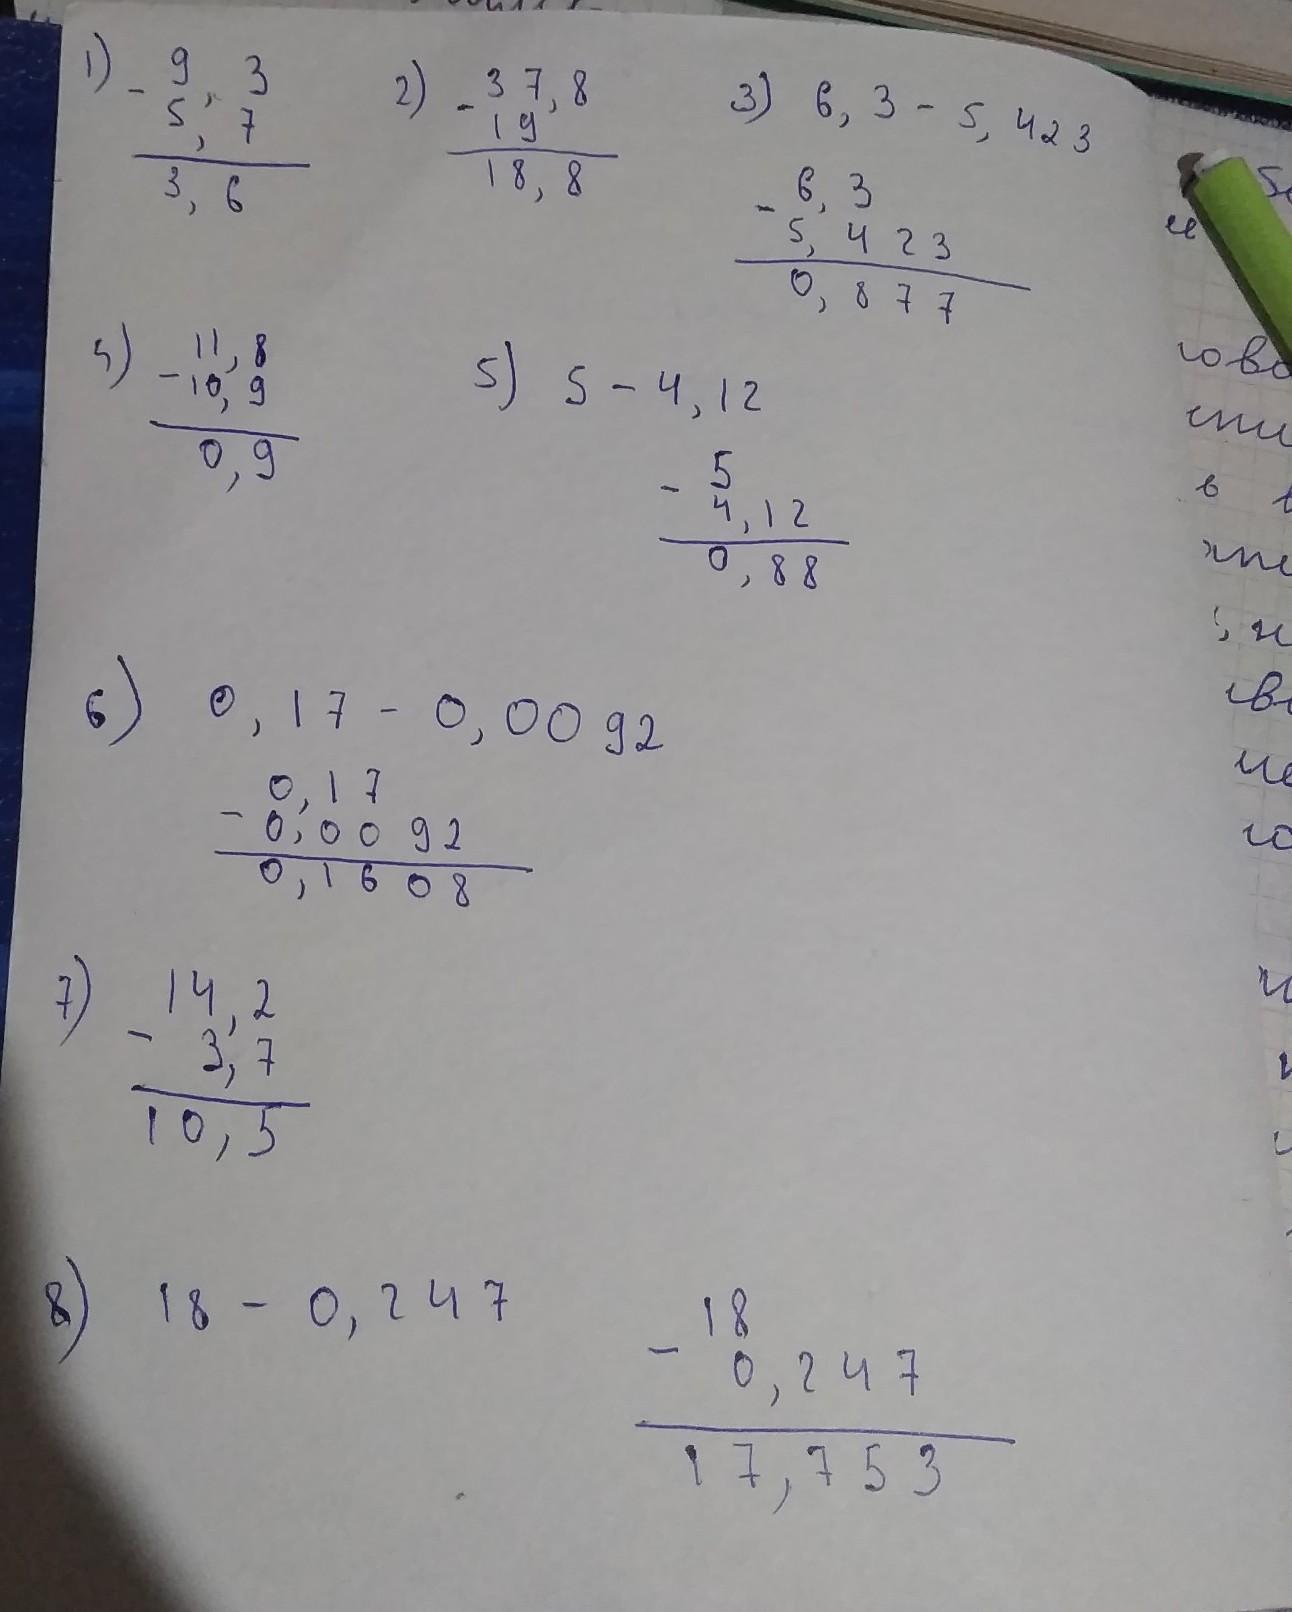 1) - 9,3
5,7
3,6
2) - 37,8
19
18,8
3) 6,3 - 5,423
- 6,3
5,423
0,877
4) - 11,8
10,9
0,9
5) 5 - 4,12
- 5
4,12
0,88
6) 0,17 - 0,0092
- 0,17
0,0092
0,1608
7) - 14,2
3,7
10,5
8) 18 - 0,247
- 18
0,247
17,753